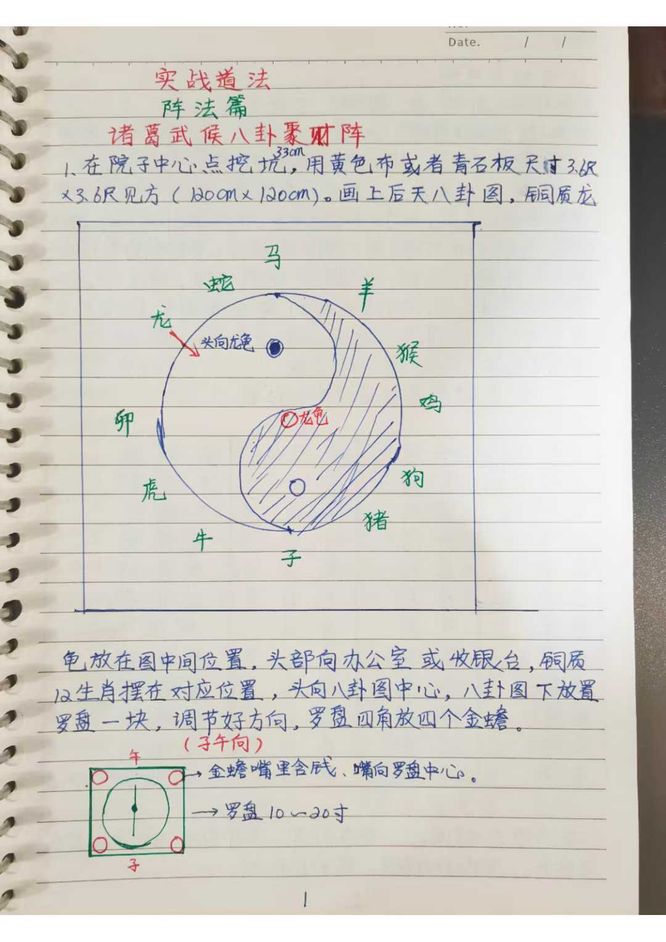 Date. / /
实战道法
阵法篇
诸葛武候八卦聚财阵
33cm
1、在院子中心点挖坑,用黄色布或者青石板尺寸3.6尺
×3.6尺见方(120cm×120cm)。画上后天八卦图,铜质龙
马
蛇
羊
龙
头向龙龟
猴
卯
龙龟
鸡
虎
狗
牛
猪
子
龟放在图中间位置,头部向办公室或收银台,铜质
12生肖摆在对应位置,头向八卦图中心,八卦图下放置
罗盘一块,调节好方向,罗盘四角放四个金蟾。
(子午向)
午
金蟾嘴里含钱、嘴向罗盘中心。
罗盘10~20寸
子
1